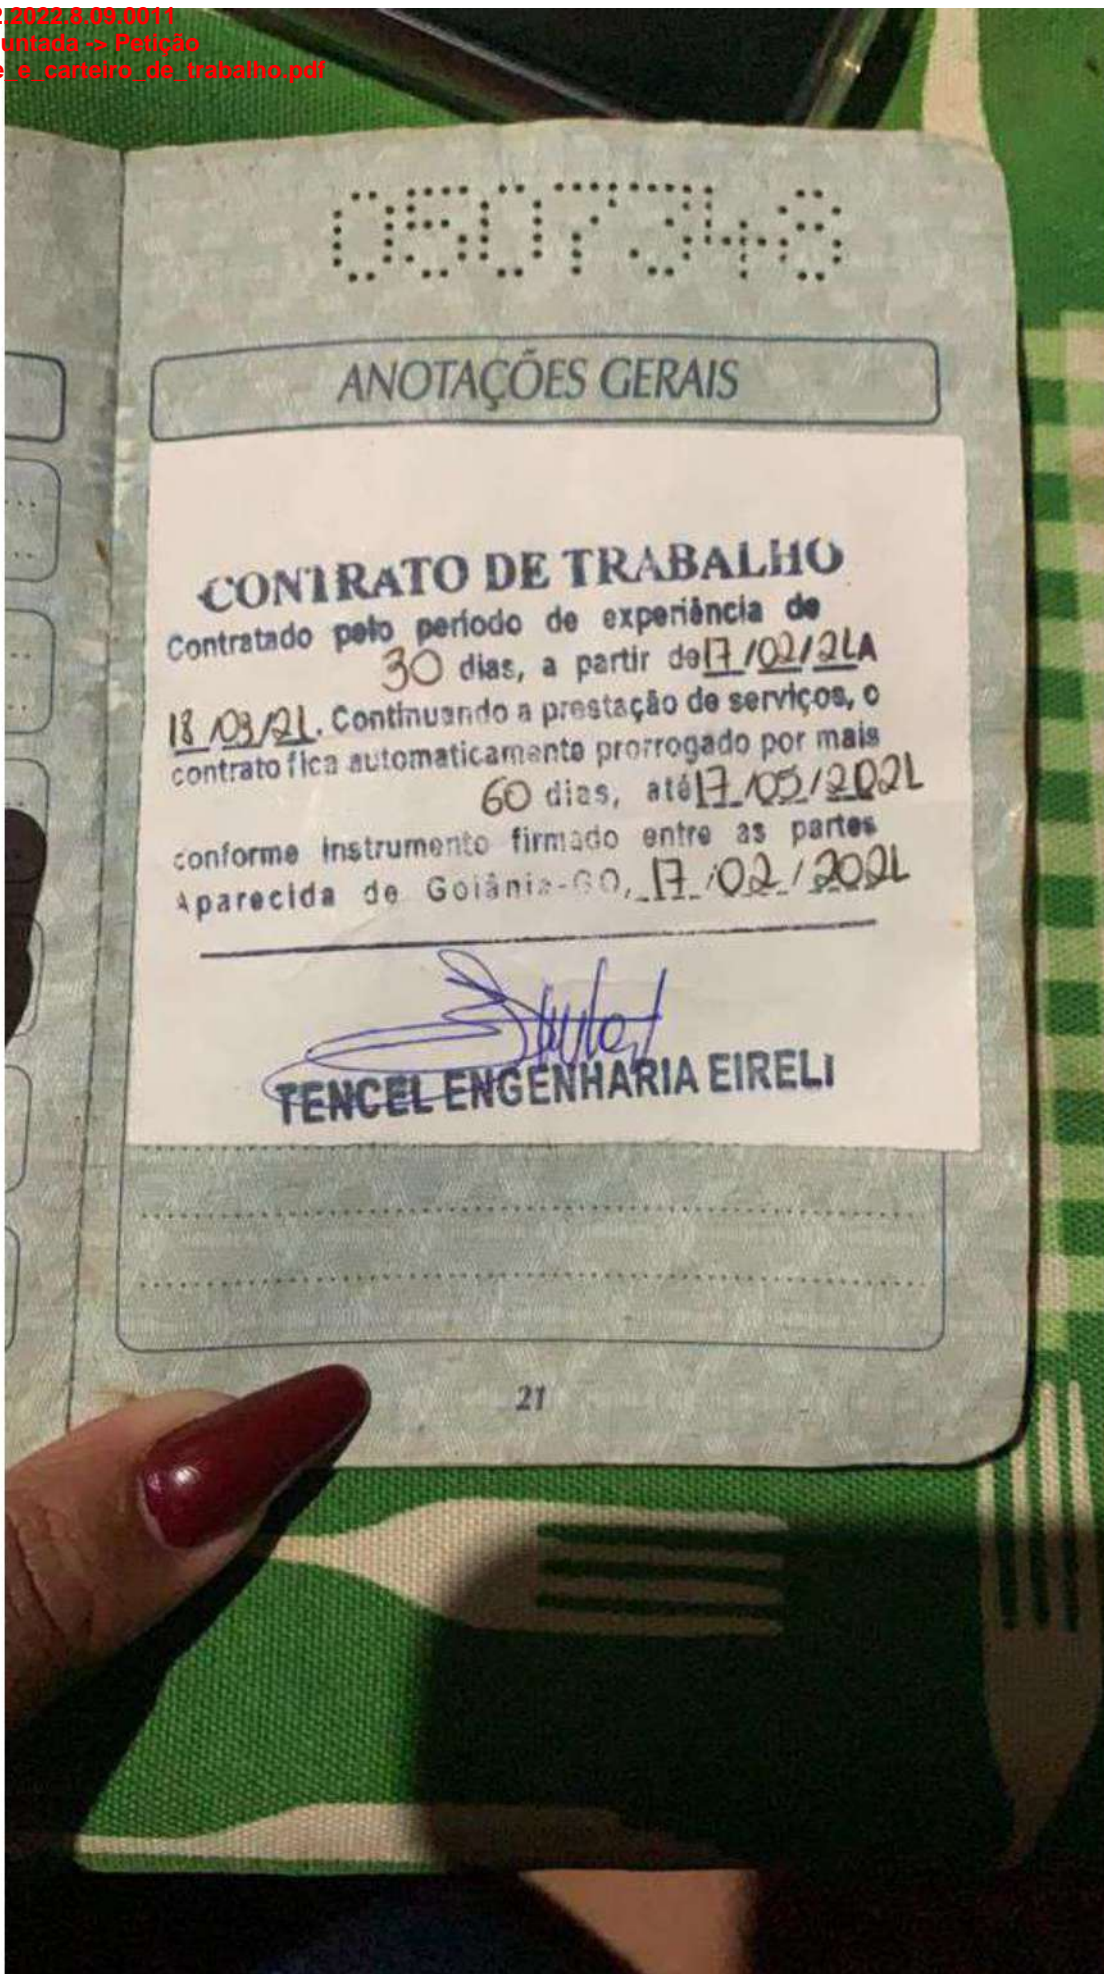 2.2022.8.09.0011
untada -> Petição
e_e_carteiro_de_trabalho.pdf
0507348
ANOTAÇÕES GERAIS
CONTRATO DE TRABALHO
Contratado pelo período de experiência de
30 dias, a partir de 17/02/21 A
18/03/21. Continuando a prestação de serviços, o
contrato fica automaticamente prorrogado por mais
60 dias, até 17/05/2021
conforme instrumento firmado entre as partes
Aparecida de Goiânia-GO, 17/02/2021
TENCEL ENGENHARIA EIRELI
21